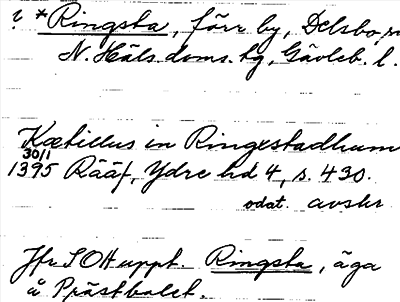 i *Ringsta, förr by, Delsbo sn
N. Häls. doms. hg, Gävleb. l.
Kætillus in Ringestadhum
30/1
1395 Rääf, Ydre hd 4, s. 430.
odat. avskr
Jfr SOH uppt. Ringsta, äga
å Prästbolet.